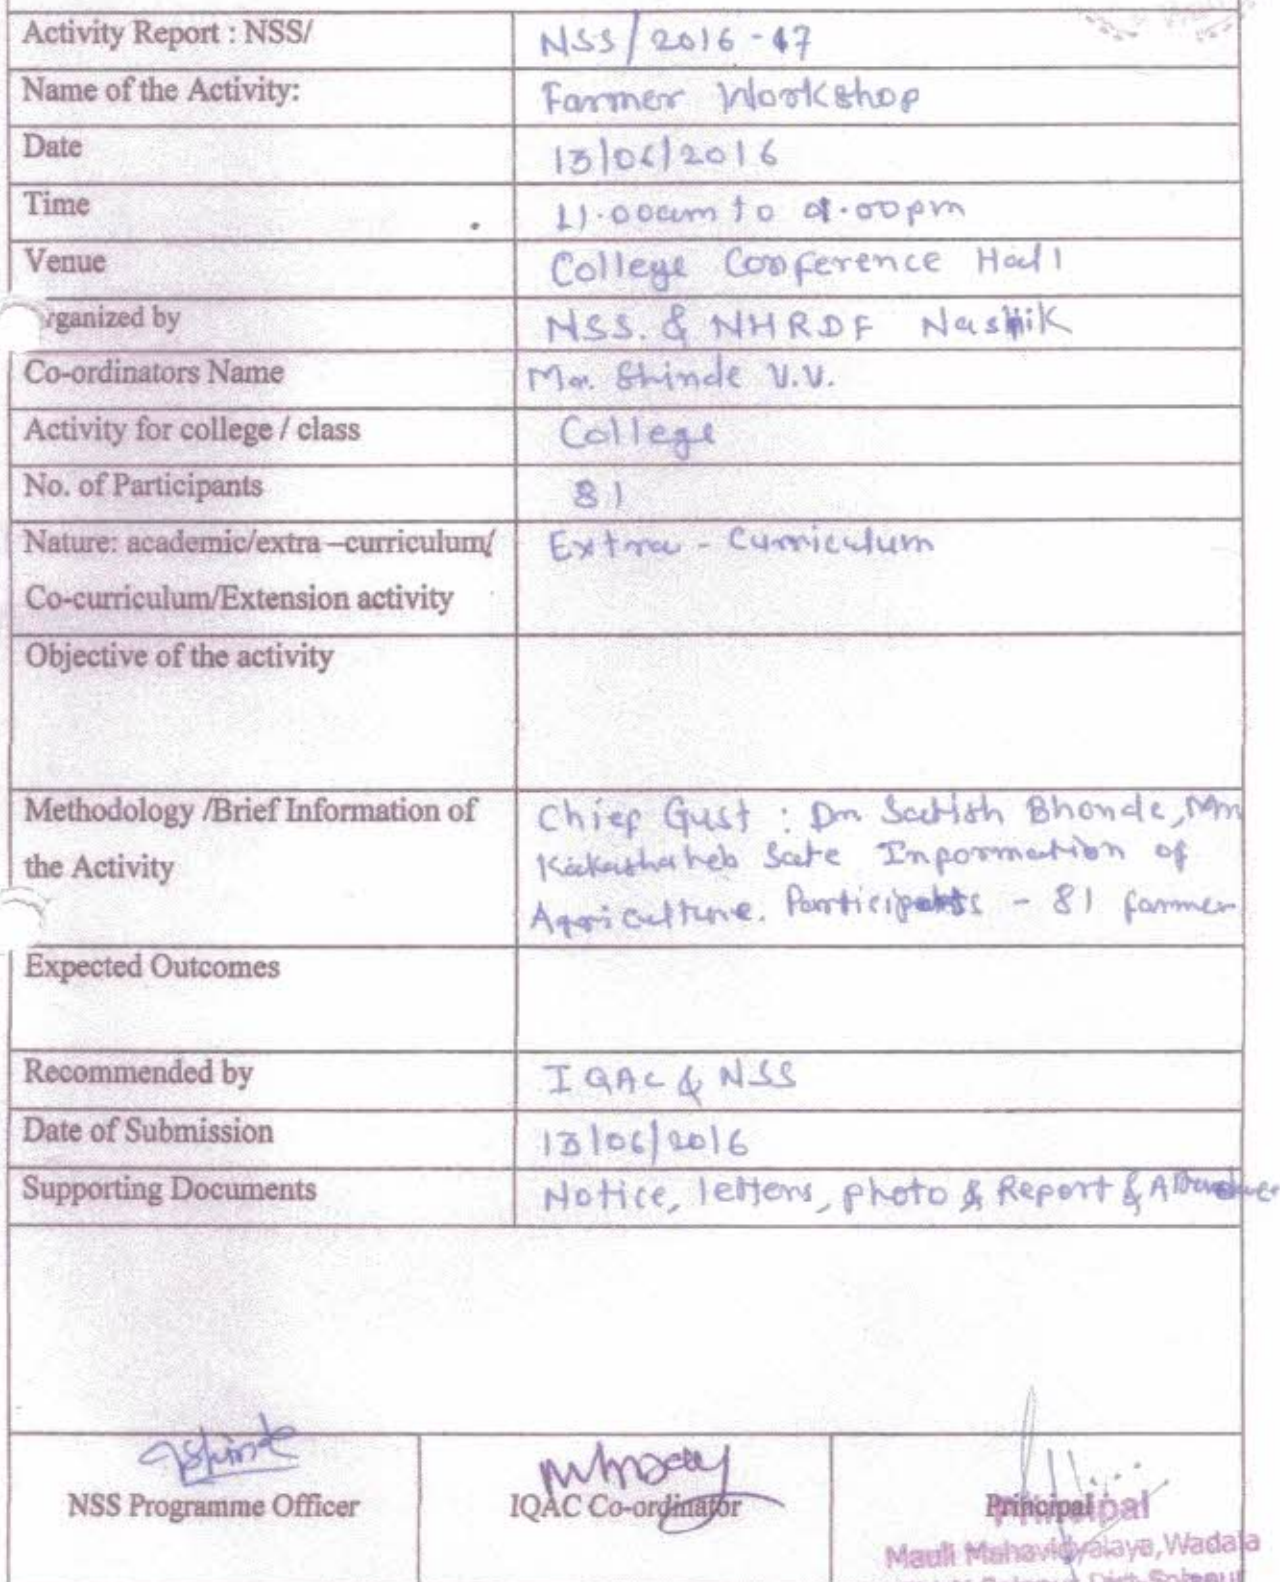 Activity Report : NSS/ NSS/2016-17
Name of the Activity: Farmer Workshop
Date 13/06/2016
Time 11.00am to .00pm
Venue College Conference Hall
rganized by NSS. & NHRDF Nashik
Co-ordinators Name Mr. Shinde V.V.
Activity for college / class College
No. of Participants 81
Nature: academic/extra –curriculum/ Extra - Curriculum
Co-curriculum/Extension activity
Objective of the activity
Methodology /Brief Information of Chief Gust : Dr Satish Bhonde, Mr
the Activity Kakasaheb Information of
Agriculture. Participants - 81 farmer
Expected Outcomes
Recommended by IQAC & NSS
Date of Submission 13/06/2016
Supporting Documents Notice, letters, photo & Report &
Shinde
NSS Programme Officer IQAC Co-ordinator Principal
Principal
Mauli Mahavidyalaya, Wadala
Dist. Solapur